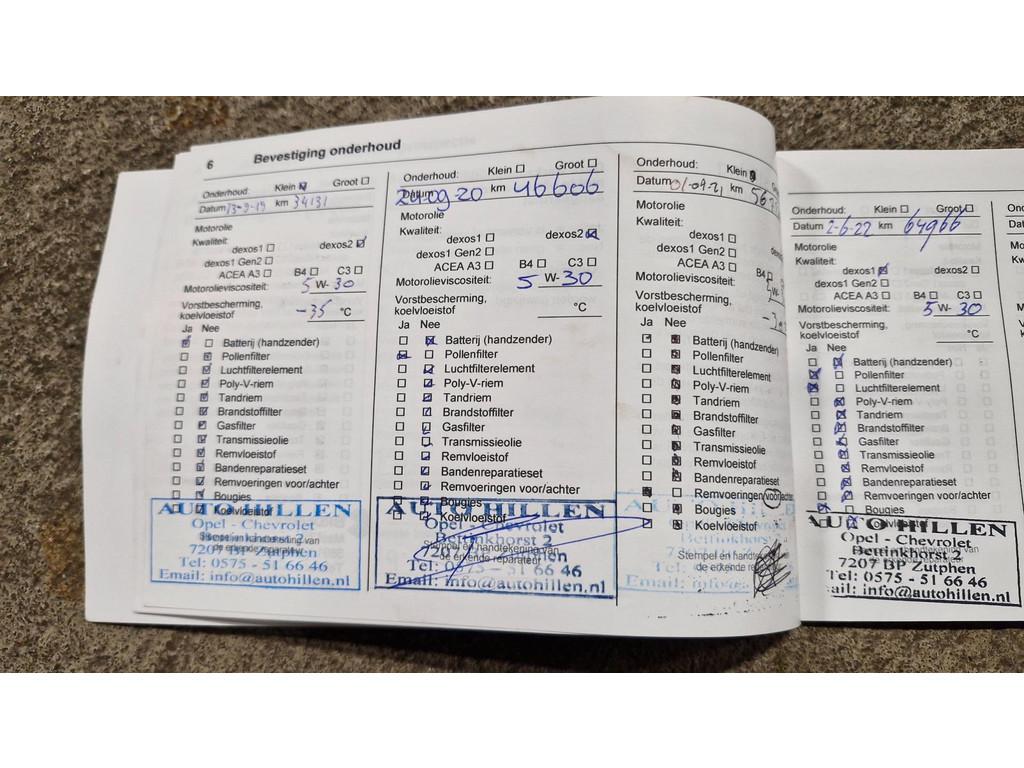 6 Bevestiging onderhoud
Onderhoud: Klein Groot
Datum 13-9-19 km 34131
Motorolie
Kwaliteit:
dexos1 dexos2
dexos1 Gen2
ACEA A3 B4 C3
Motorolieviscositeit: 5 W- 30
Vorstbescherming,
koelvloeistof -35 °C
Ja Nee
Batterij (handzender)
Pollenfilter
Luchtfilterelement
Poly-V-riem
Tandriem
Brandstoffilter
Gasfilter
Transmissieolie
Remvloeistof
Bandenreparatieset
Remvoeringen voor/achter
Bougies
Koelvloeistof
AUTO HILLEN
Opel - Chevrolet
Bettinkhorst 2
7207 BP Zutphen
Tel: 0575 - 51 66 46
Email: info@autohillen.nl
Onderhoud: Klein Groot
Datum 20-09-20 km 46606
Motorolie
Kwaliteit:
dexos1 dexos2
dexos1 Gen2
ACEA A3 B4 C3
Motorolieviscositeit: 5 W- 30
Vorstbescherming,
koelvloeistof °C
Ja Nee
Batterij (handzender)
Pollenfilter
Luchtfilterelement
Poly-V-riem
Tandriem
Brandstoffilter
Gasfilter
Transmissieolie
Remvloeistof
Bandenreparatieset
Remvoeringen voor/achter
Bougies
Koelvloeistof
AUTO HILLEN
Opel - Chevrolet
Bettinkhorst 2
Stempel en handtekening van
de erkende reparateur
7207 BP Zutphen
Tel: 0575 - 51 66 46
Email: info@autohillen.nl
Onderhoud: Klein
Datum 01-09-21 km
Motorolie
Kwaliteit:
dexos1
dexos1 Gen2
ACEA A3 B4
Motorolieviscositeit:
Vorstbescherming,
koelvloeistof
Ja Nee
Batterij (handzender)
Pollenfilter
Luchtfilterelement
Poly-V-riem
Tandriem
Brandstoffilter
Gasfilter
Transmissieolie
Remvloeistof
Bandenreparatieset
Remvoeringen voor/achter
Bougies
Koelvloeistof
Stempel en
de erkende
Onderhoud: Klein Groot
Datum 2-6-22 km 64966
Motorolie
Kwaliteit:
dexos1 dexos2
dexos1 Gen2
ACEA A3 B4 C3
Motorolieviscositeit: 5 W- 30
Vorstbescherming,
koelvloeistof °C
Ja Nee
Batterij (handzender)
Pollenfilter
Luchtfilterelement
Poly-V-riem
Tandriem
Brandstoffilter
Gasfilter
Transmissieolie
Remvloeistof
Bandenreparatieset
Remvoeringen voor/achter
Bougies
Koelvloeistof
AUTO HILLEN
Opel - Chevrolet
Bettinkhorst 2
7207 BP Zutphen
Tel: 0575 - 51 66 46
info@autohillen.nl